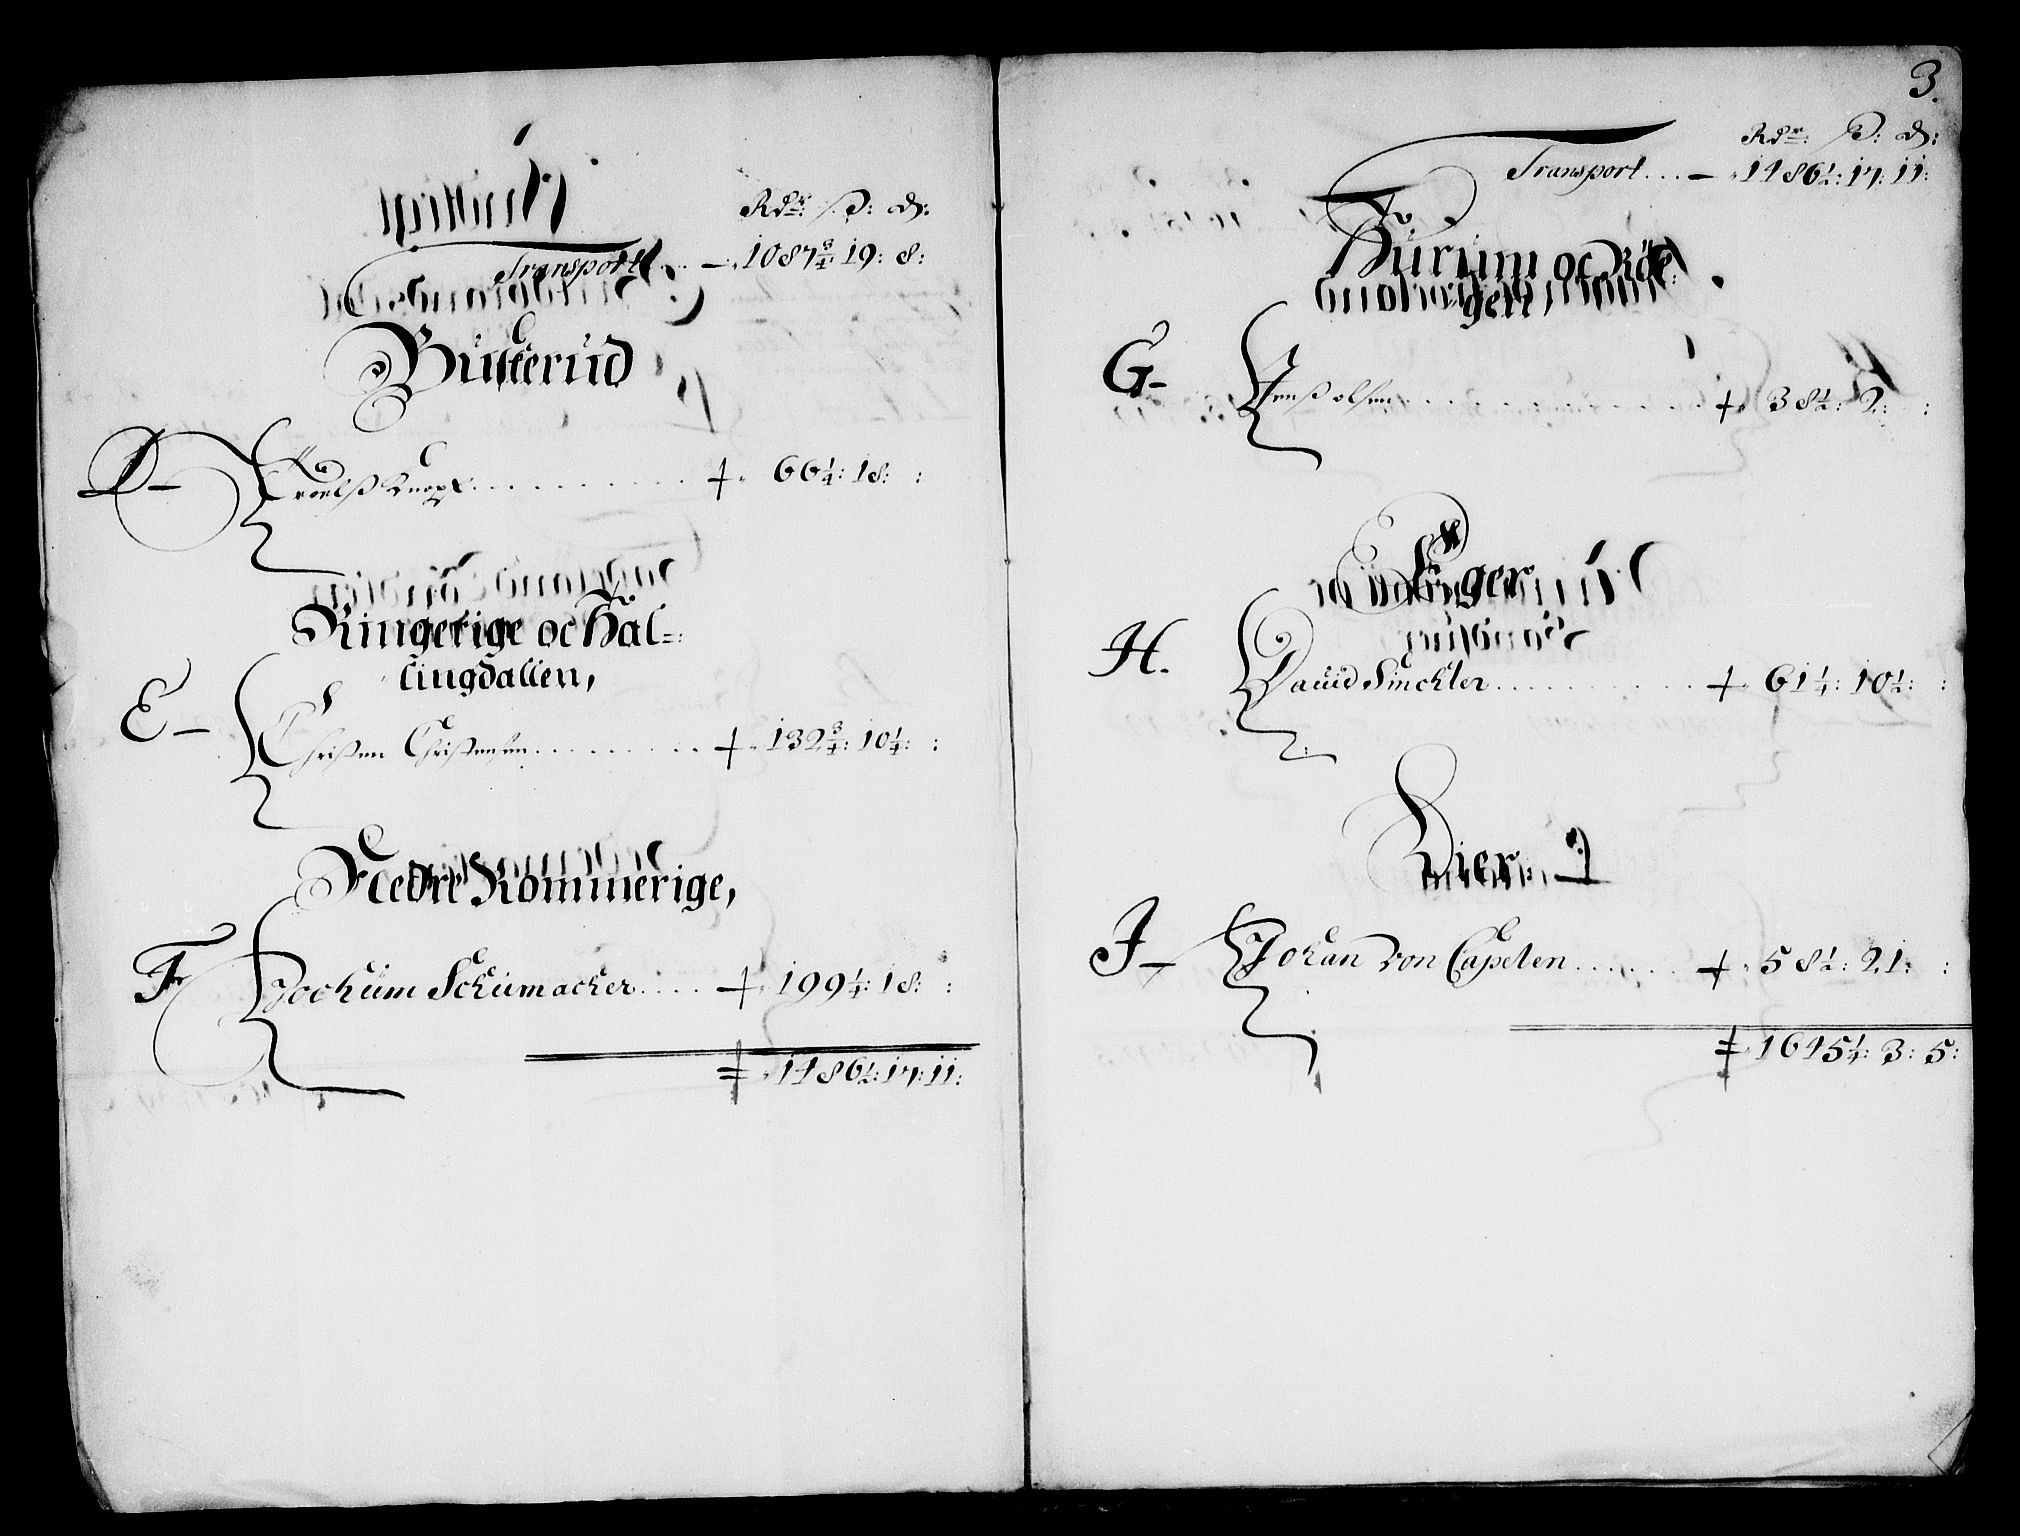 Rdr: ß: d:
Transport . . . — 1087¾: 19: 8:
Buskerud
D— Troelß Knopf . . . . . . . . . + 66¼: 18: :
Ringerige oc Hal=
lingdallen,
E— Christen Christensen . . . . . . . + 132¾: 10¼: :
Nedre Rommerige,
F Jochum Schumacher . . . . + 199¼: 18: :
1486½: 17: 11:
3.
Rdr: ß: d:
Transport . . . — 1486½: 17: 11:
Hurum oc Röe
gen,
G— Jenß olsen . . . . . . . . . . . + 38½: 2: :
Eger
H. Dauid Sinckler . . . . . . . . . + 61¼: 10½: :
Lier:
J— Johan von Capelen . . . . . . + 58½: 21: :
1645¼: 3: 5: